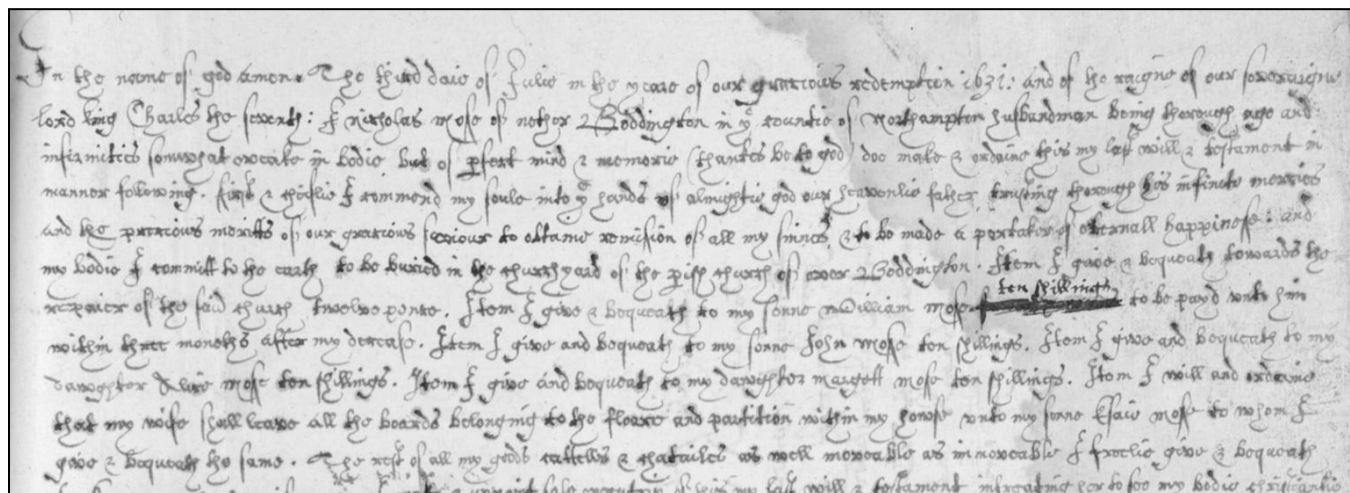 In the name of god amen. The third daie of Julie in the yeare of our gratious redemption 1631: and of the raigne of our soveraigne
lord king Charles the seventh: I nicholas mose of nether Boddington in yͤ countie of Northampton husbandman being thorough age and
infirmities somwhat weake in bodie but of pfect mind & memorie (thankes be to god) doe make & ordaine this my last will & testament in
manner following. first & chieflie I commend my soule into yͤ hands of almightie god our heavenlie father, trusting thorough his infinite mercies
and the pretious meritts of our gratious saviour to obtaine remission of all my sinnes, & to be made a partaker of eternall happinesse: and
my bodie I committ to the earth to be buried in the churchyard of the pish church of over Boddington. Item I give & bequeath towards the
repaier of the said church twelve pence. Item I give & bequeath to my sonne William mose ten shillings to be payd unto him
within three moneths after my decease. Item I give and bequeath to my sonne John mose ten shillings. Item I give and bequeath to my
dawghter Alice mose ten shillings. Item I give and bequeath to my dawghter margett mose ten shillings. Item I will and ordaine
that my wife shall leave all the boards belonging to the floare and partition within my howse unto my sonne Esaie mose to whom I
give & bequeath the same. The rest of all my gods cattells & chatailes as well moveable as immoveable I freelie give & bequeath
sole executrix of this my last will & testament intreating her to see my bodie christianlie